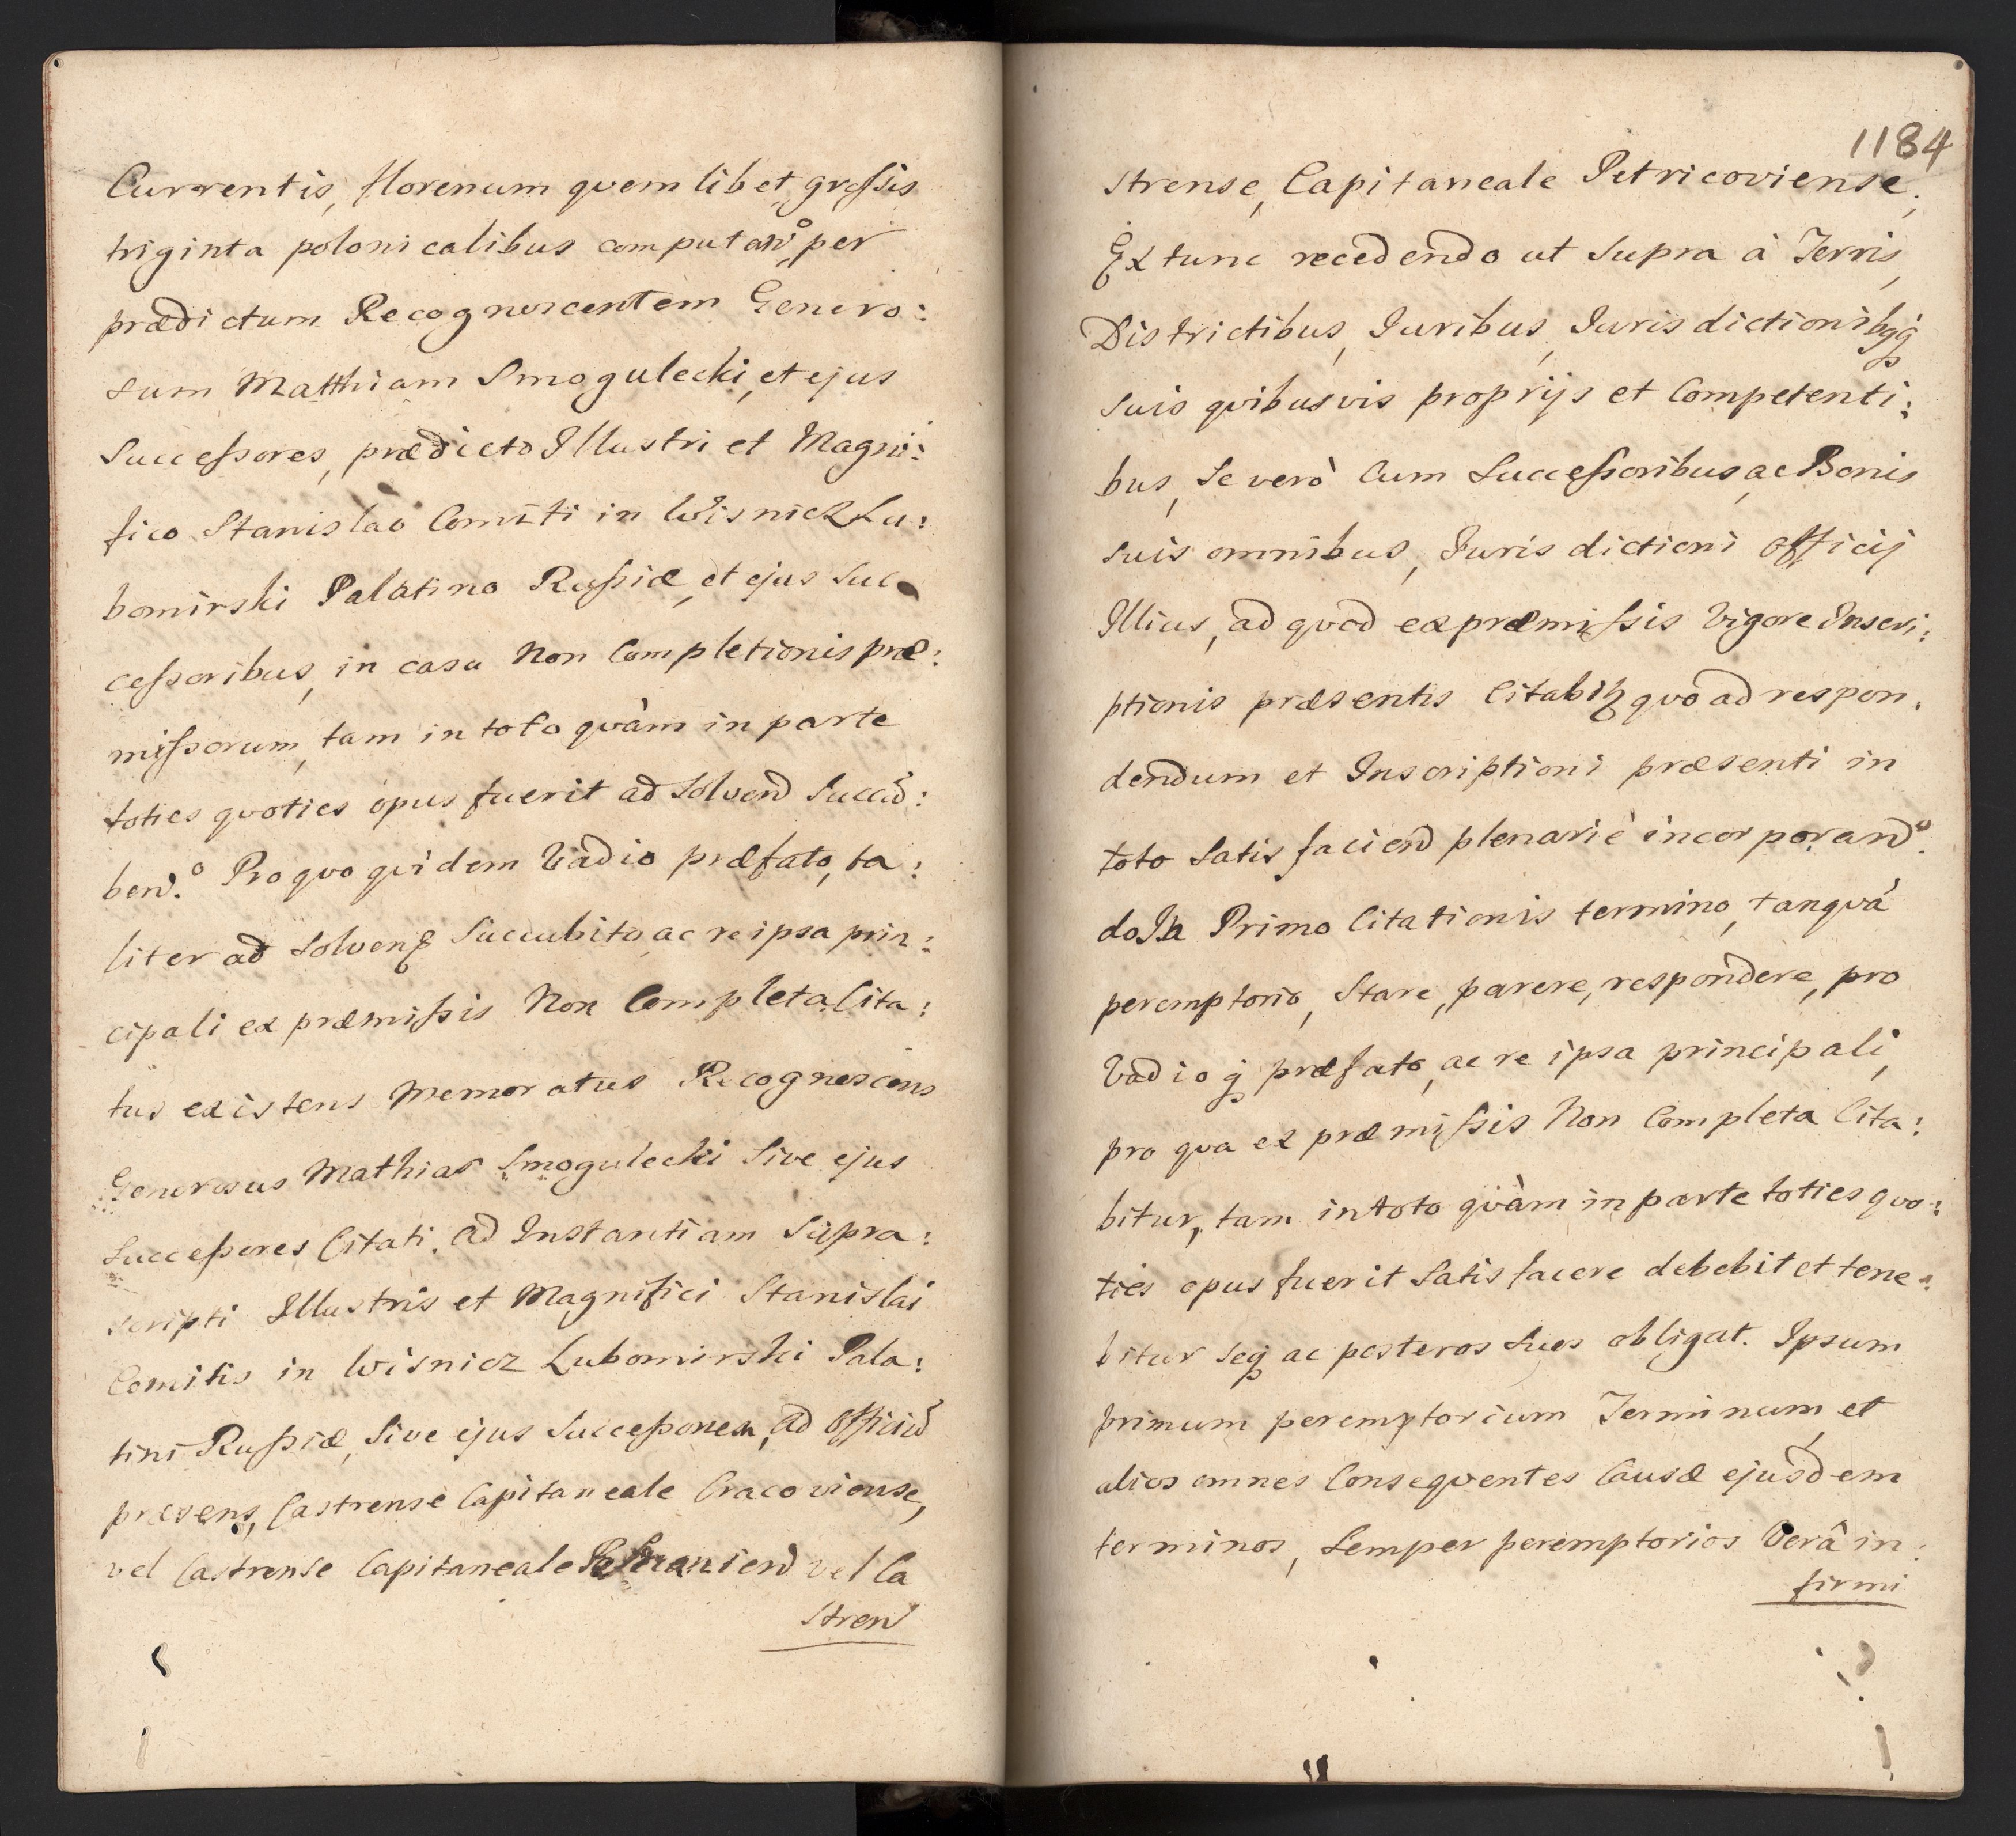 Currentis, florenum quem libet, grossis
triginta polonicalibus computan͠o, per
prædictum Recognoscentem Genero:
sum Matthiam Smogulecki, et ejus
Successores, prædicto Illustri et Magni:
fico Stanislao Comiti in Wisnicz Lu:
bomirski Palatino Russiæ, et ejus Suc
cessoribus, in casu Non Completionis præ:
missorum, tam in toto quàm in parte
toties quoties opus fuerit ad Solvend Succū:
bend.o Pro quo quidem Vadio præfato, ta:
liter ad Solvend Succubito, ac re ipsa prin:
cipali ex præmissis Non Completa, Cita:
tus existens Memoratus Recognoscens
Generosus Mathias Smogulecki Sive ejus
Successores Citati, ad Instantiam Supra:
scripti Illustris et Magnifici Stanislai
Comitis in Wisnicz Lubomirski Pala:
tini Russiæ, Sive ejus Successorem, ad Officiū
præsens, Castrense Capitaneale Cracoviense,
vel Castrense Capitaneale vel Ca
Stren
1184
strense, Capitaneale Petricoviense,
Extunc recedendo ut Supra à Terris,
Districtibus, Juribus, Jurisdictionibqꝫ
Suis quibusvis proprijs et Competenti:
bus, Se verò Cum Successoribus, ac Bonis
Suis omnibus, Jurisdictioni Officij
Illius, ad quod ex præmissis Vigore Inscri:
ptionis præsentis Citabitꝫ quo ad respon,
dendum et Inscriptioni præsenti in
toto Satisfaciend plenariè incorporand.o
do In Primo Citationis termino, tanquā
peremptorio, Stare, parere, respondere, pro
Vadio q̨ præfato, ac re ipsa principali,
pro qua ex præmissis Non Completa Cita:
bitur, tam in toto quàm in parte toties quo:
ties opus fuerit Satisfacere debebit et tene:
bitur Seq̨ ac posteros Suos obligat. Ipsum
primum peremptorium Terminum, et
alios omnes Consequentes Causæ ejusdem
terminos, Semper peremptorios Verâ in:
firmi